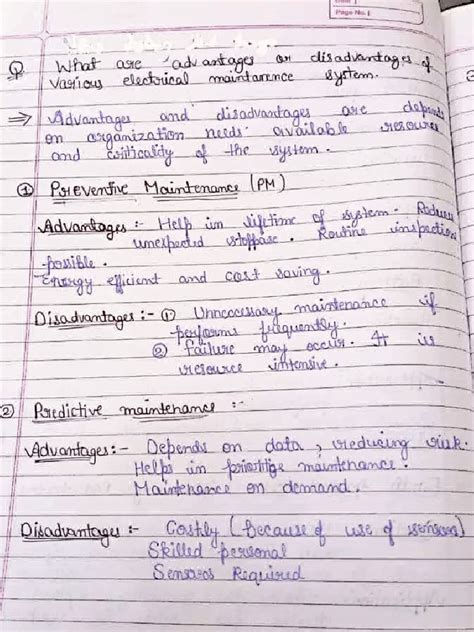 Page No.
Q. What are advantages or disadvantages of
various electrical maintanence system.
⇒ Advantages and disadvantages are depends
on organization needs available resource
and criticality of the system.
① Preventive Maintenance (PM)
Advantages :- Help im lifetime of system. Reduces
unexpected stoppase. Routine inspection
possible.
Energy efficient and cost saving.
Disadvantages :- ① Unnecessary maintenance if
performs frequently.
② failure may occur. It is
resource intensive.
② Predictive maintenance :-
Advantages:- Depends on data, reducing risk.
Helps in prioritize maintenance.
Maintenance on demand.
Disadvantages :- Costly (because of use of sensors)
Skilled personal
Sensors Required